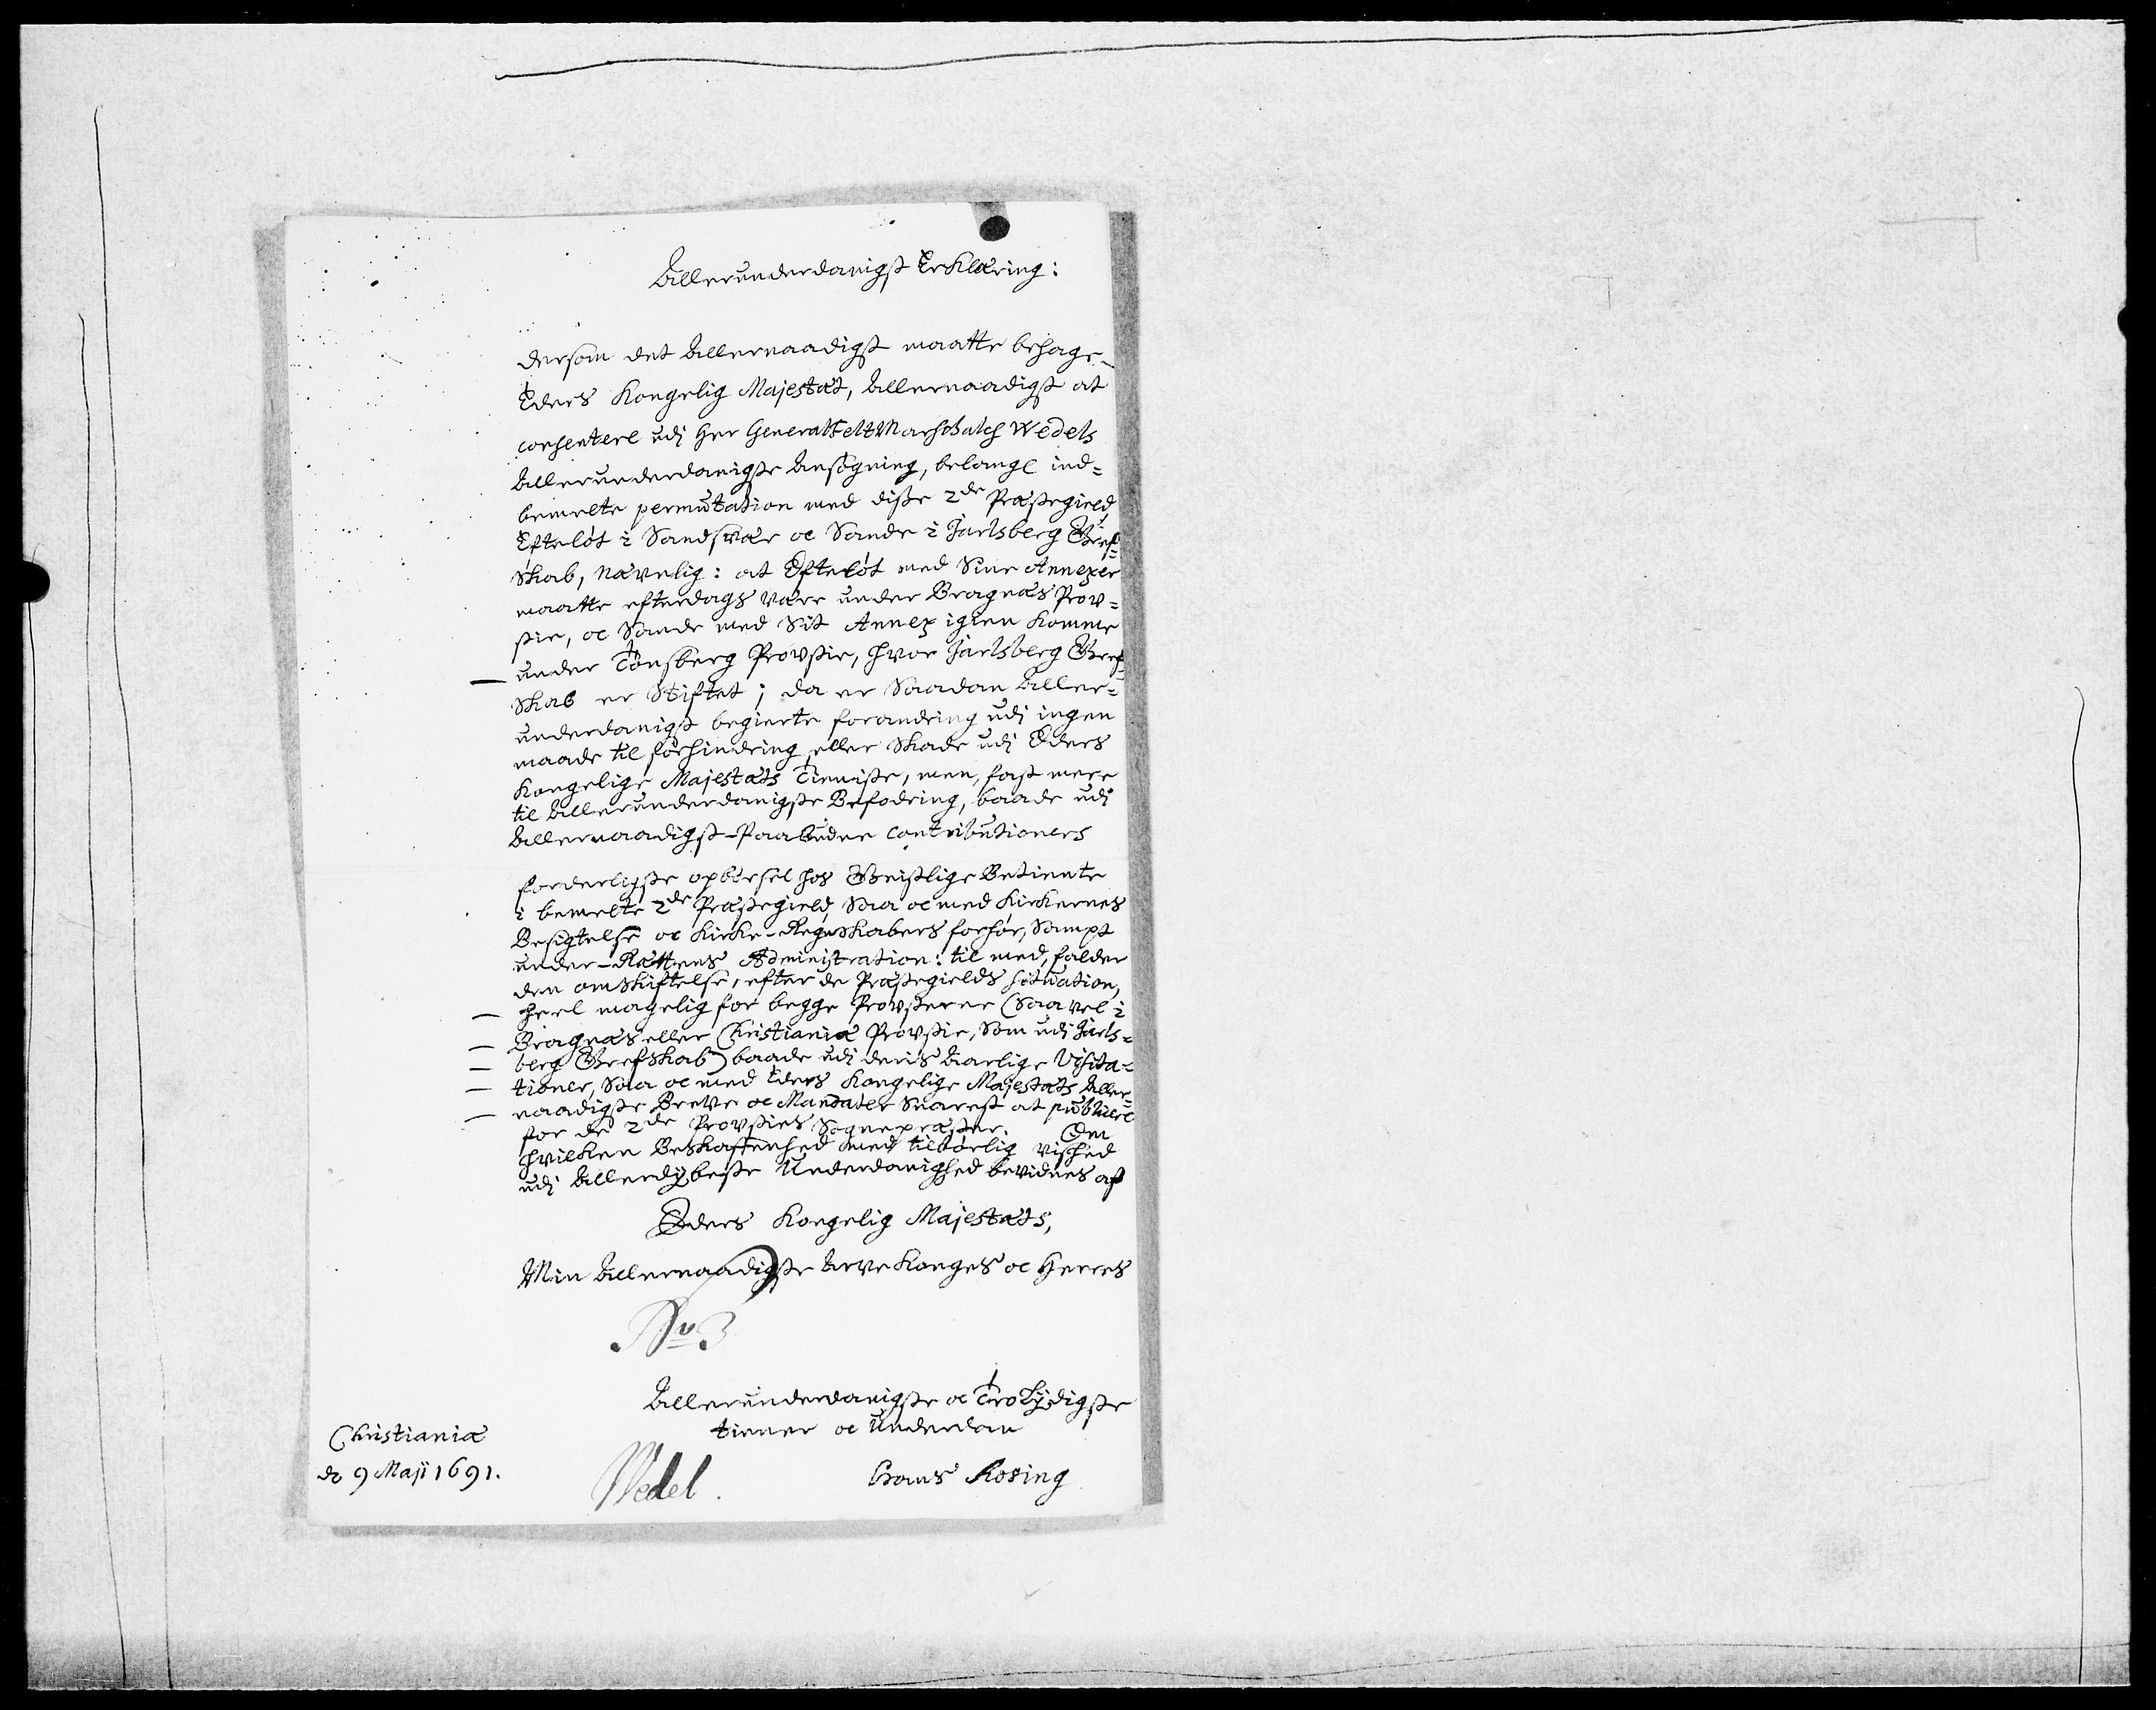 Allerunderdanigst Erklæring:
dersom det Allernaadigst maatte behage
Eders Kongelig Majestæt, Allernaadigst at
consentere udj Her General Felt Marschalch Wedels
Allerunderdanigste Ansøgning, belange ind=
bemelte permutation med disse 2de Præstegield
Efteløt i Sandsvær oc Sande i Jarlsberg Gref=
skab, Nævnlig: at Efteløt med Sine Annexer
maatte efterdags være under Bragnæs Prov=
stie, oc Sande med Sit Annex igien komme
under Tønsberg Provstie, hvor Jarlsberg Gref=
skab er Stiftet; da er Saadan Aller=
underdanigst begierte forandring udj ingen
maade til forhindring eller skade udj Eders
Kongelige Majestæts Tieniste, men fast mere
til Allerunderdanigste Befodring, baade udj
Allernaadigst-Paabudne Contributioners
forderligste opbørsel hos Geistlige Betiente
i bemelte 2de Præstegield, Saa oc med Kirkernes
Besigtelse oc Kirke-Regnskabers forhør, Sampt
under-Rættens Administration: til med, falder
den omskiftelse, efter de Præstegields situation,
heel magelig for begge Provsterne (Saavel i
Bragnæs eller Christianiæ Provstie, Som udj Jarls=
berg Grefskab) baade udj deris Aarlige Visita=
tioner, Saa oc med Eders Kongelige Majestæts Aller=
naadigste Breve oc Mandater Snarest at publicere
for de 2de Provstiers Sognepræster. Om
hvilken Beskaffenhed med tilbørlig vished
udj Allerdybeste Underdanighed bevidnes af
Eders Kongelig Majestæts,
Min Allernaadigste Arve Konges oc Herres
No 3
Allerunderdanigste oc Troelydigste
tiener oc Underdan
Christianiæ
de 9 Maji 1691.
Wedel.
Hans Rosing